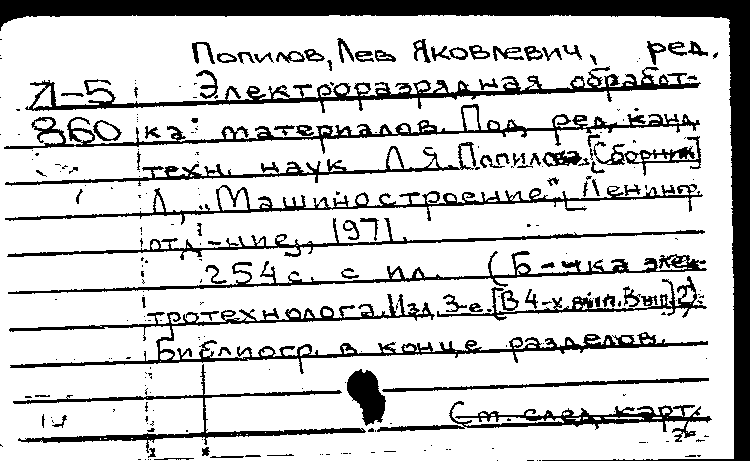 Попилов, Лев Яковлевич, ред.
Л-5 Электроразрядная обработ-
860 ка материалов. Под ред. канд.
техн. наук Л.Я. Попилова. [Сборник]
Л., "Машиностроение", [Ленингр.
отд-ние], 1971.
254 с. с ил. (Б-чка элек-
тротехнолога. Изд. 3-е. [В 4-х вып. Вып] 2).
Библиогр. в конце разделов.
См. след. карт.